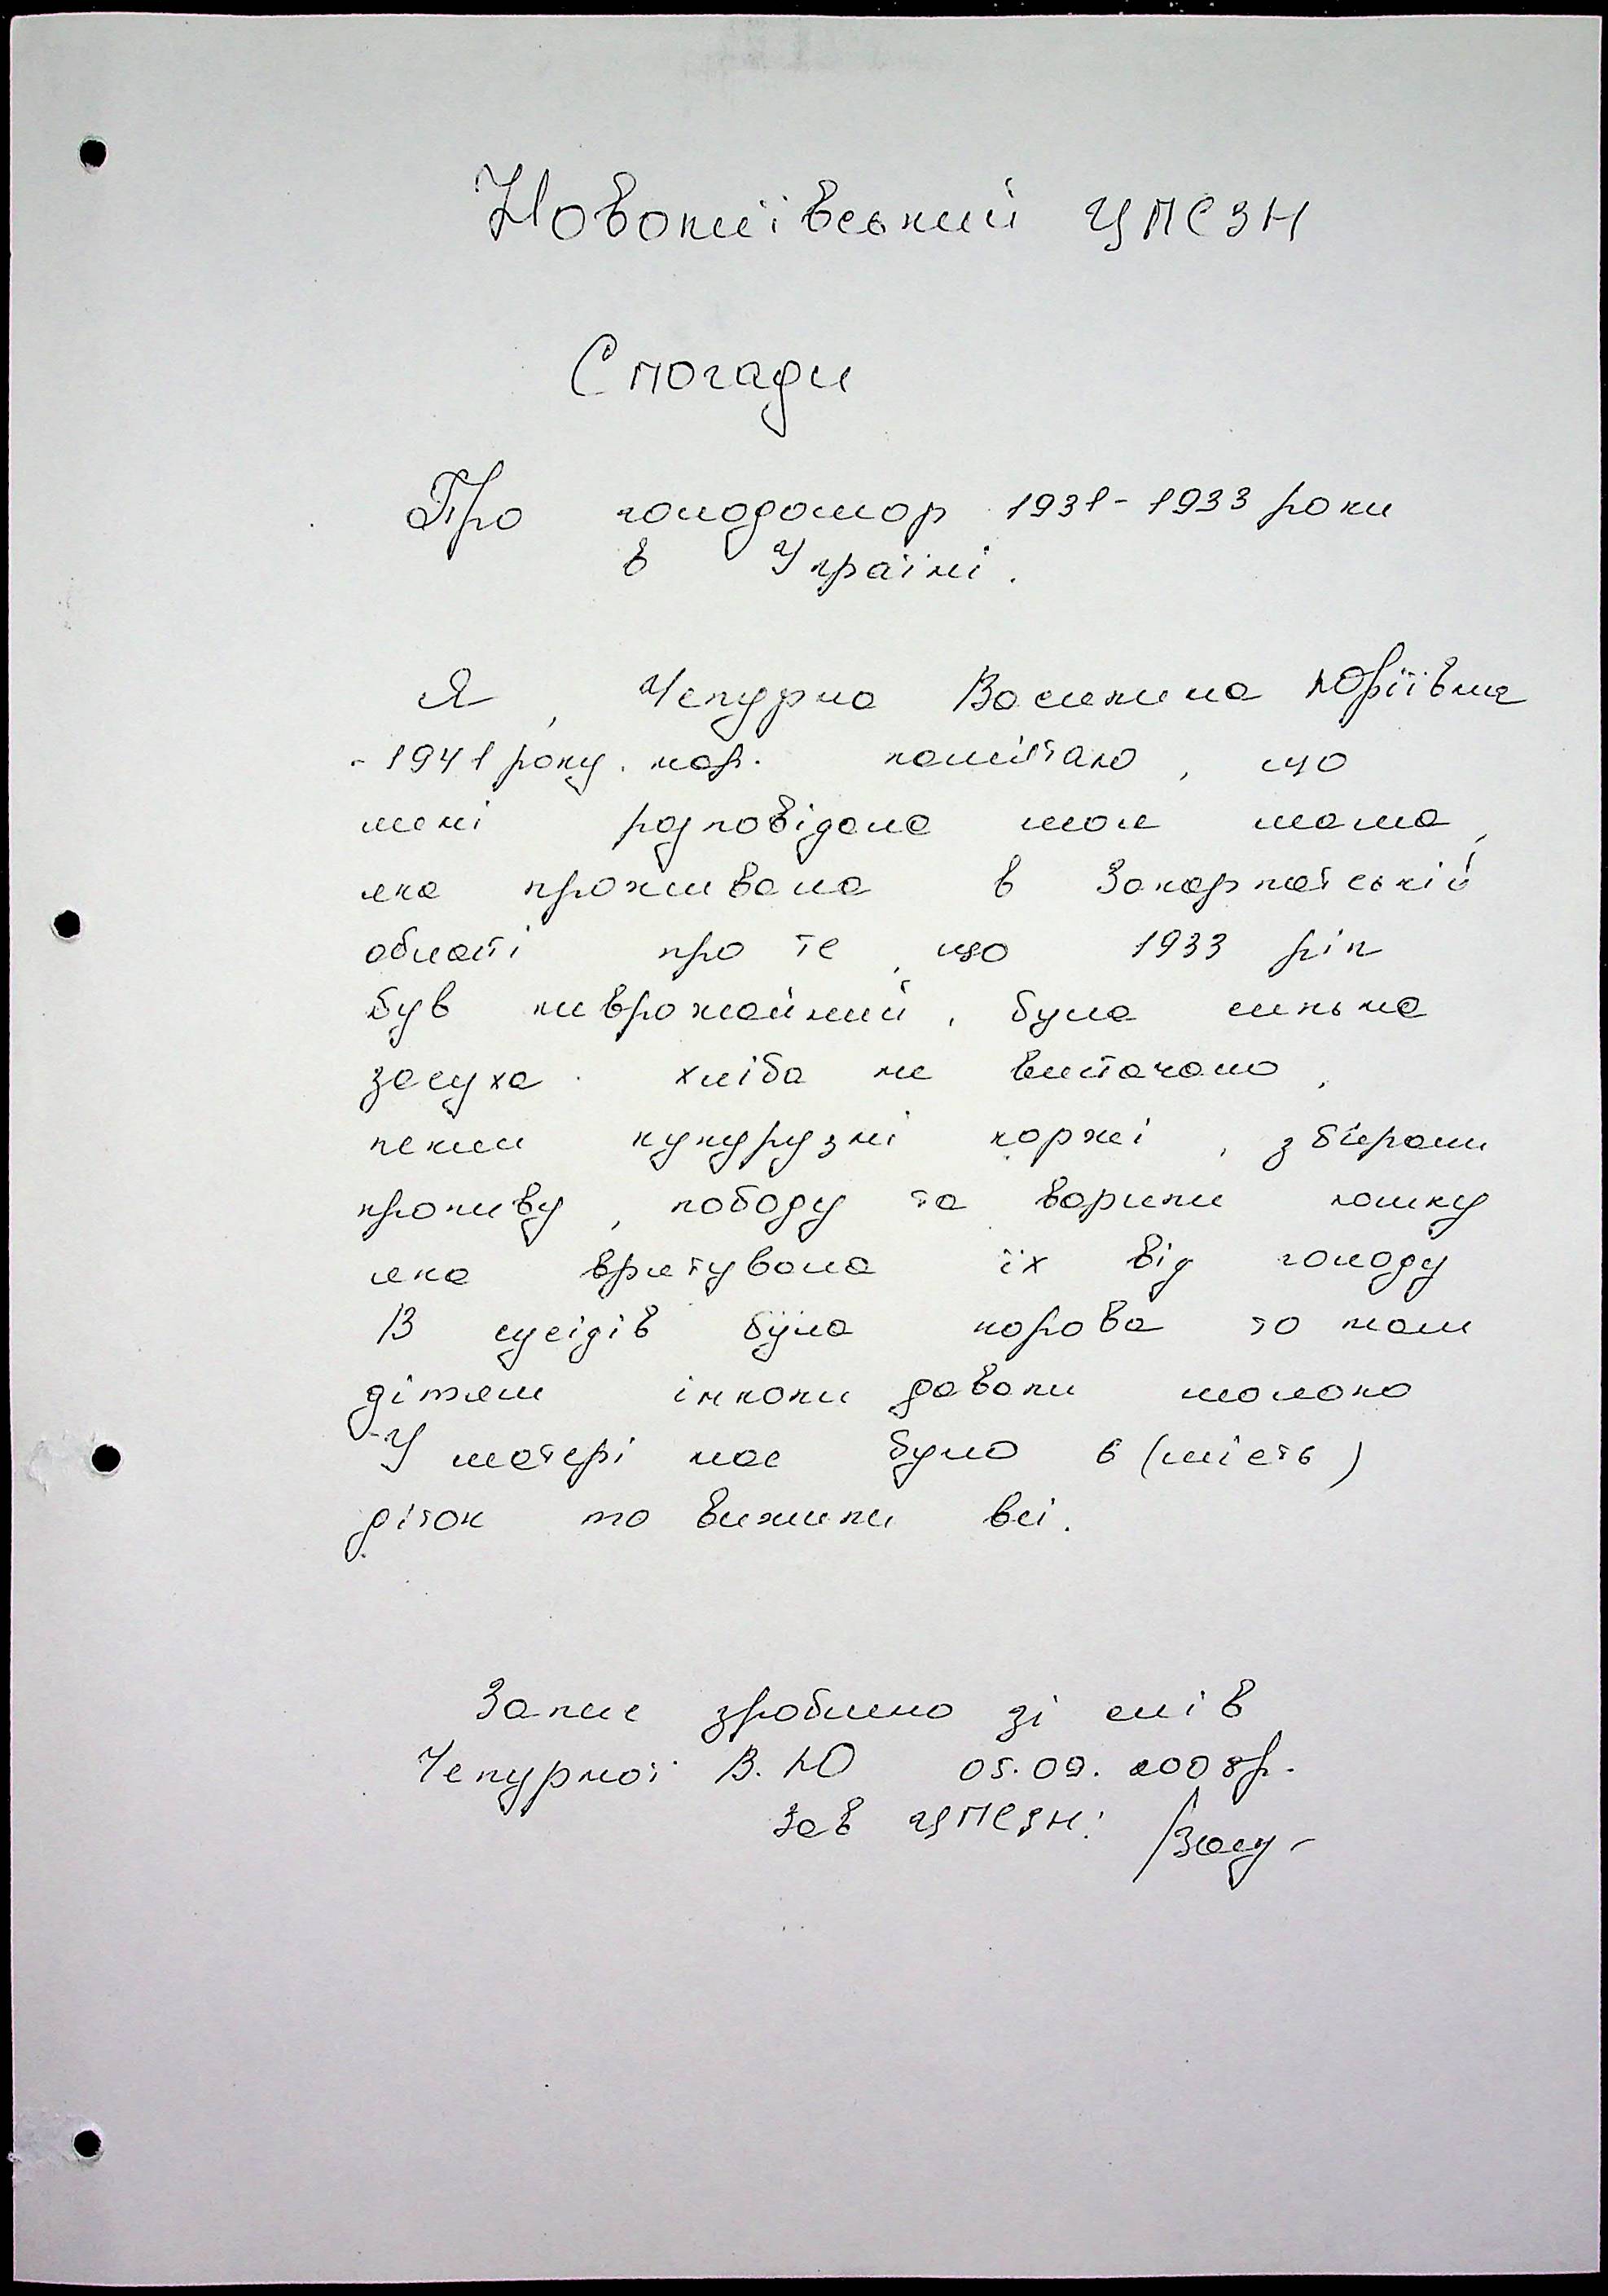 Новокиївський ЦПСЗН
Спогади
Про голодомор 1931-1933 роки
в Україні.
Я, Чепурна Василина Юріївна
- 1941 року. нар. памʼятаю, що
мені розповідала моя мама,
яка проживала в Закарпатській
області про те, що 1933 рік
був неврожайний, була сильна
засуха. хліба не вистачало,
пекли кукурузні коржі, збирали
кропиву, лободу та варили кашку
яка врятувала їх від голоду
В сусідів була корова то нам
дітям інколи давали молоко
У матері нас було 6 (шість)
діток то вижили всі.
Запис зроблено зі слів
Чепурної В. Ю 05.09.2008р.
Зав ЦПСЗН: